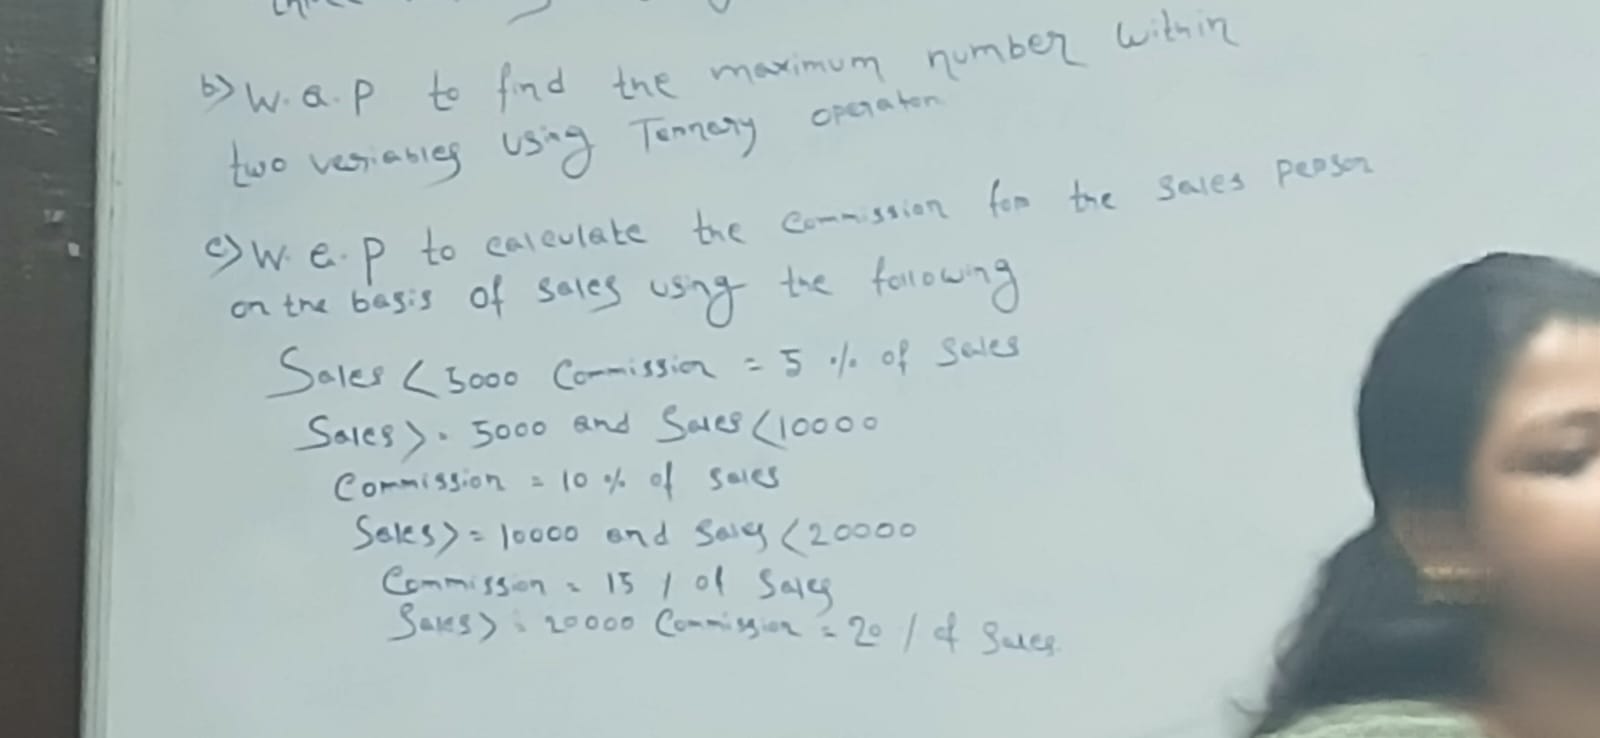 b) W.a.p to find the maximum number within
two variables using Ternary operator
c) W.a.p to calculate the Commission for the Sales person
on the basis of sales using the following
Sales < 5000 Commission = 5 % of sales
Sales >= 5000 and Sales < 10000
Commission = 10 % of sales
Sales >= 10000 and Sales < 20000
Commission = 15 / of Sales
Sales >= 20000 Commission = 20 / of Sales.